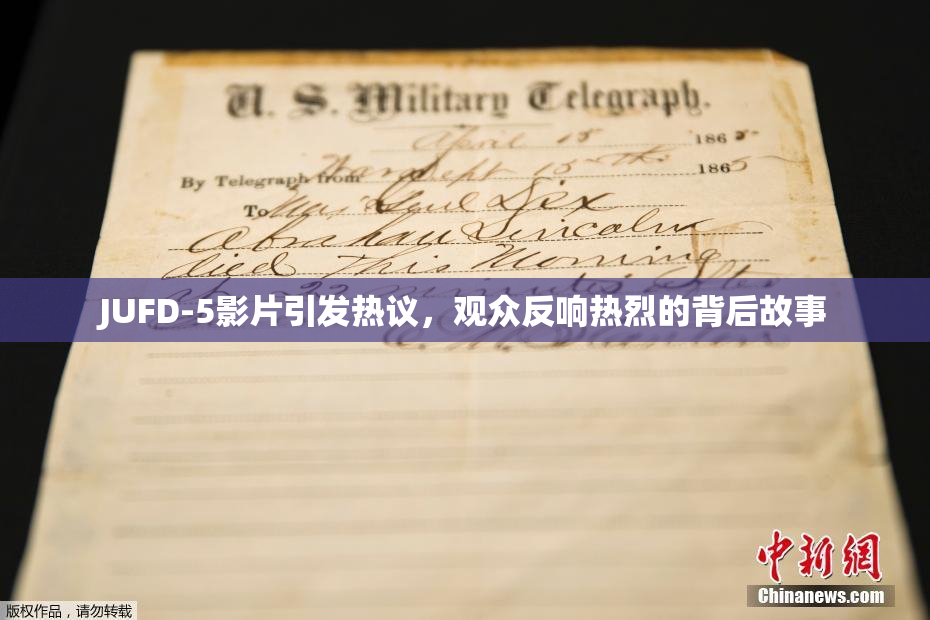 U. S. Military Telegraph.
April 15 1865
By Telegraph from War Dept 15th 1865
To Maj Genl Dix
Abraham Lincoln
died This Morning
at 22 minutes after
JUFD-5影片引发热议，观众反响热烈的背后故事
E. M. Stanton
中新网
Chinanews.com
版权作品，请勿转载